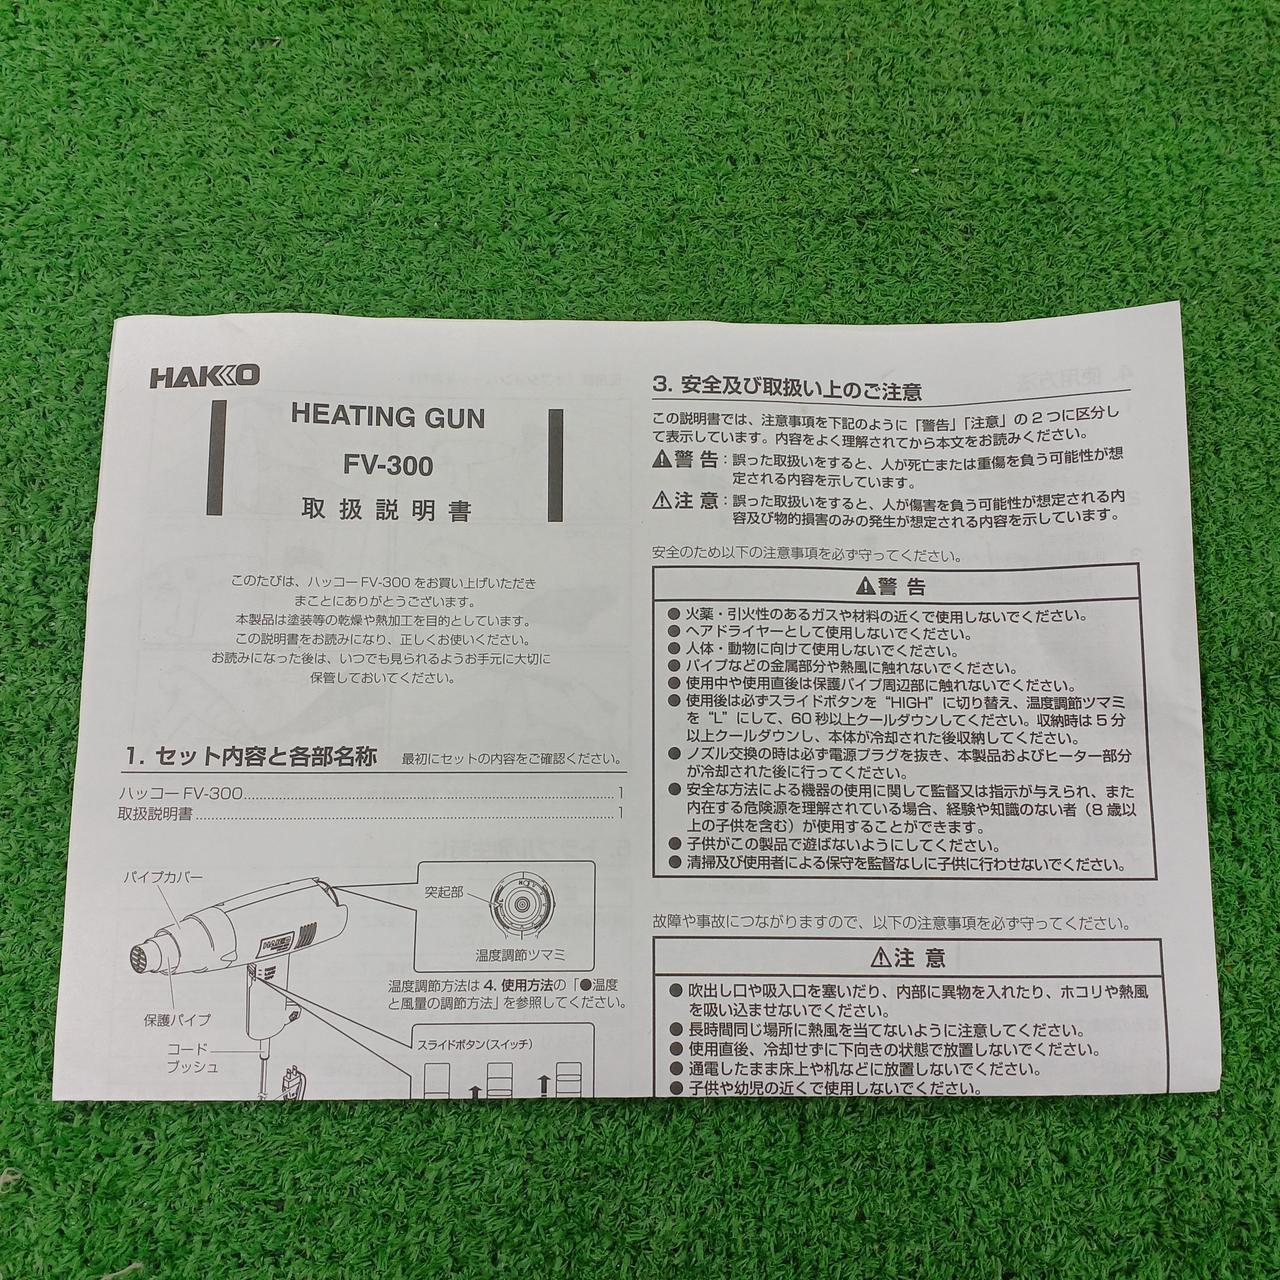 HAKKO
HEATING GUN
FV-300
取扱説明書
このたびは、ハッコーFV-300をお買い上げいただき
まことにありがとうございます。
本製品は塗装等の乾燥や熱加工を目的としています。
この説明書をお読みになり、正しくお使いください。
お読みになった後は、いつでも見られるようお手元に大切に
保管しておいてください。
1. セット内容と各部名称 最初にセットの内容をご確認ください。
ハッコーFV-300 1
取扱説明書 1
パイプカバー
突起部
温度調節ツマミ
HAKKO
保護パイプ
温度調節方法は4. 使用方法の「●温度
と風量の調節方法」を参照してください。
コード
ブッシュ
スライドボタン(スイッチ)
3. 安全及び取扱い上のご注意
この説明書では、注意事項を下記のように「警告」「注意」の2つに区分し
て表示しています。内容をよく理解されてから本文をお読みください。
⚠警告：誤った取扱いをすると、人が死亡または重傷を負う可能性が想
定される内容を示しています。
⚠注意：誤った取扱いをすると、人が傷害を負う可能性が想定される内
容及び物的損害のみの発生が想定される内容を示しています。
安全のため以下の注意事項を必ず守ってください。
⚠警告
●火薬・引火性のあるガスや材料の近くで使用しないでください。
●ヘアドライヤーとして使用しないでください。
●人体・動物に向けて使用しないでください。
●パイプなどの金属部分や熱風に触れないでください。
●使用中や使用直後は保護パイプ周辺部に触れないでください。
●使用後は必ずスライドボタンを“HIGH”に切り替え、温度調節ツマミ
を“L”にして、60秒以上クールダウンしてください。収納時は5分
以上クールダウンし、本体が冷却された後収納してください。
●ノズル交換の時は必ず電源プラグを抜き、本製品およびヒーター部分
が冷却された後に行ってください。
●安全な方法による機器の使用に関して監督又は指示が与えられ、また
内在する危険源を理解されている場合、経験や知識のない者（8歳以
上の子供を含む）が使用することができます。
●子供がこの製品で遊ばないようにしてください。
●清掃及び使用者による保守を監督なしに子供に行わせないでください。
故障や事故につながりますので、以下の注意事項を必ず守ってください。
⚠注意
●吹出し口や吸入口を塞いだり、内部に異物を入れたり、ホコリや熱風
を吸い込ませないでください。
●長時間同じ場所に熱風を当てないように注意してください。
●使用直後、冷却せずに下向きの状態で放置しないでください。
●通電したまま床上や机などに放置しないでください。
●子供や幼児の近くで使用しないでください。